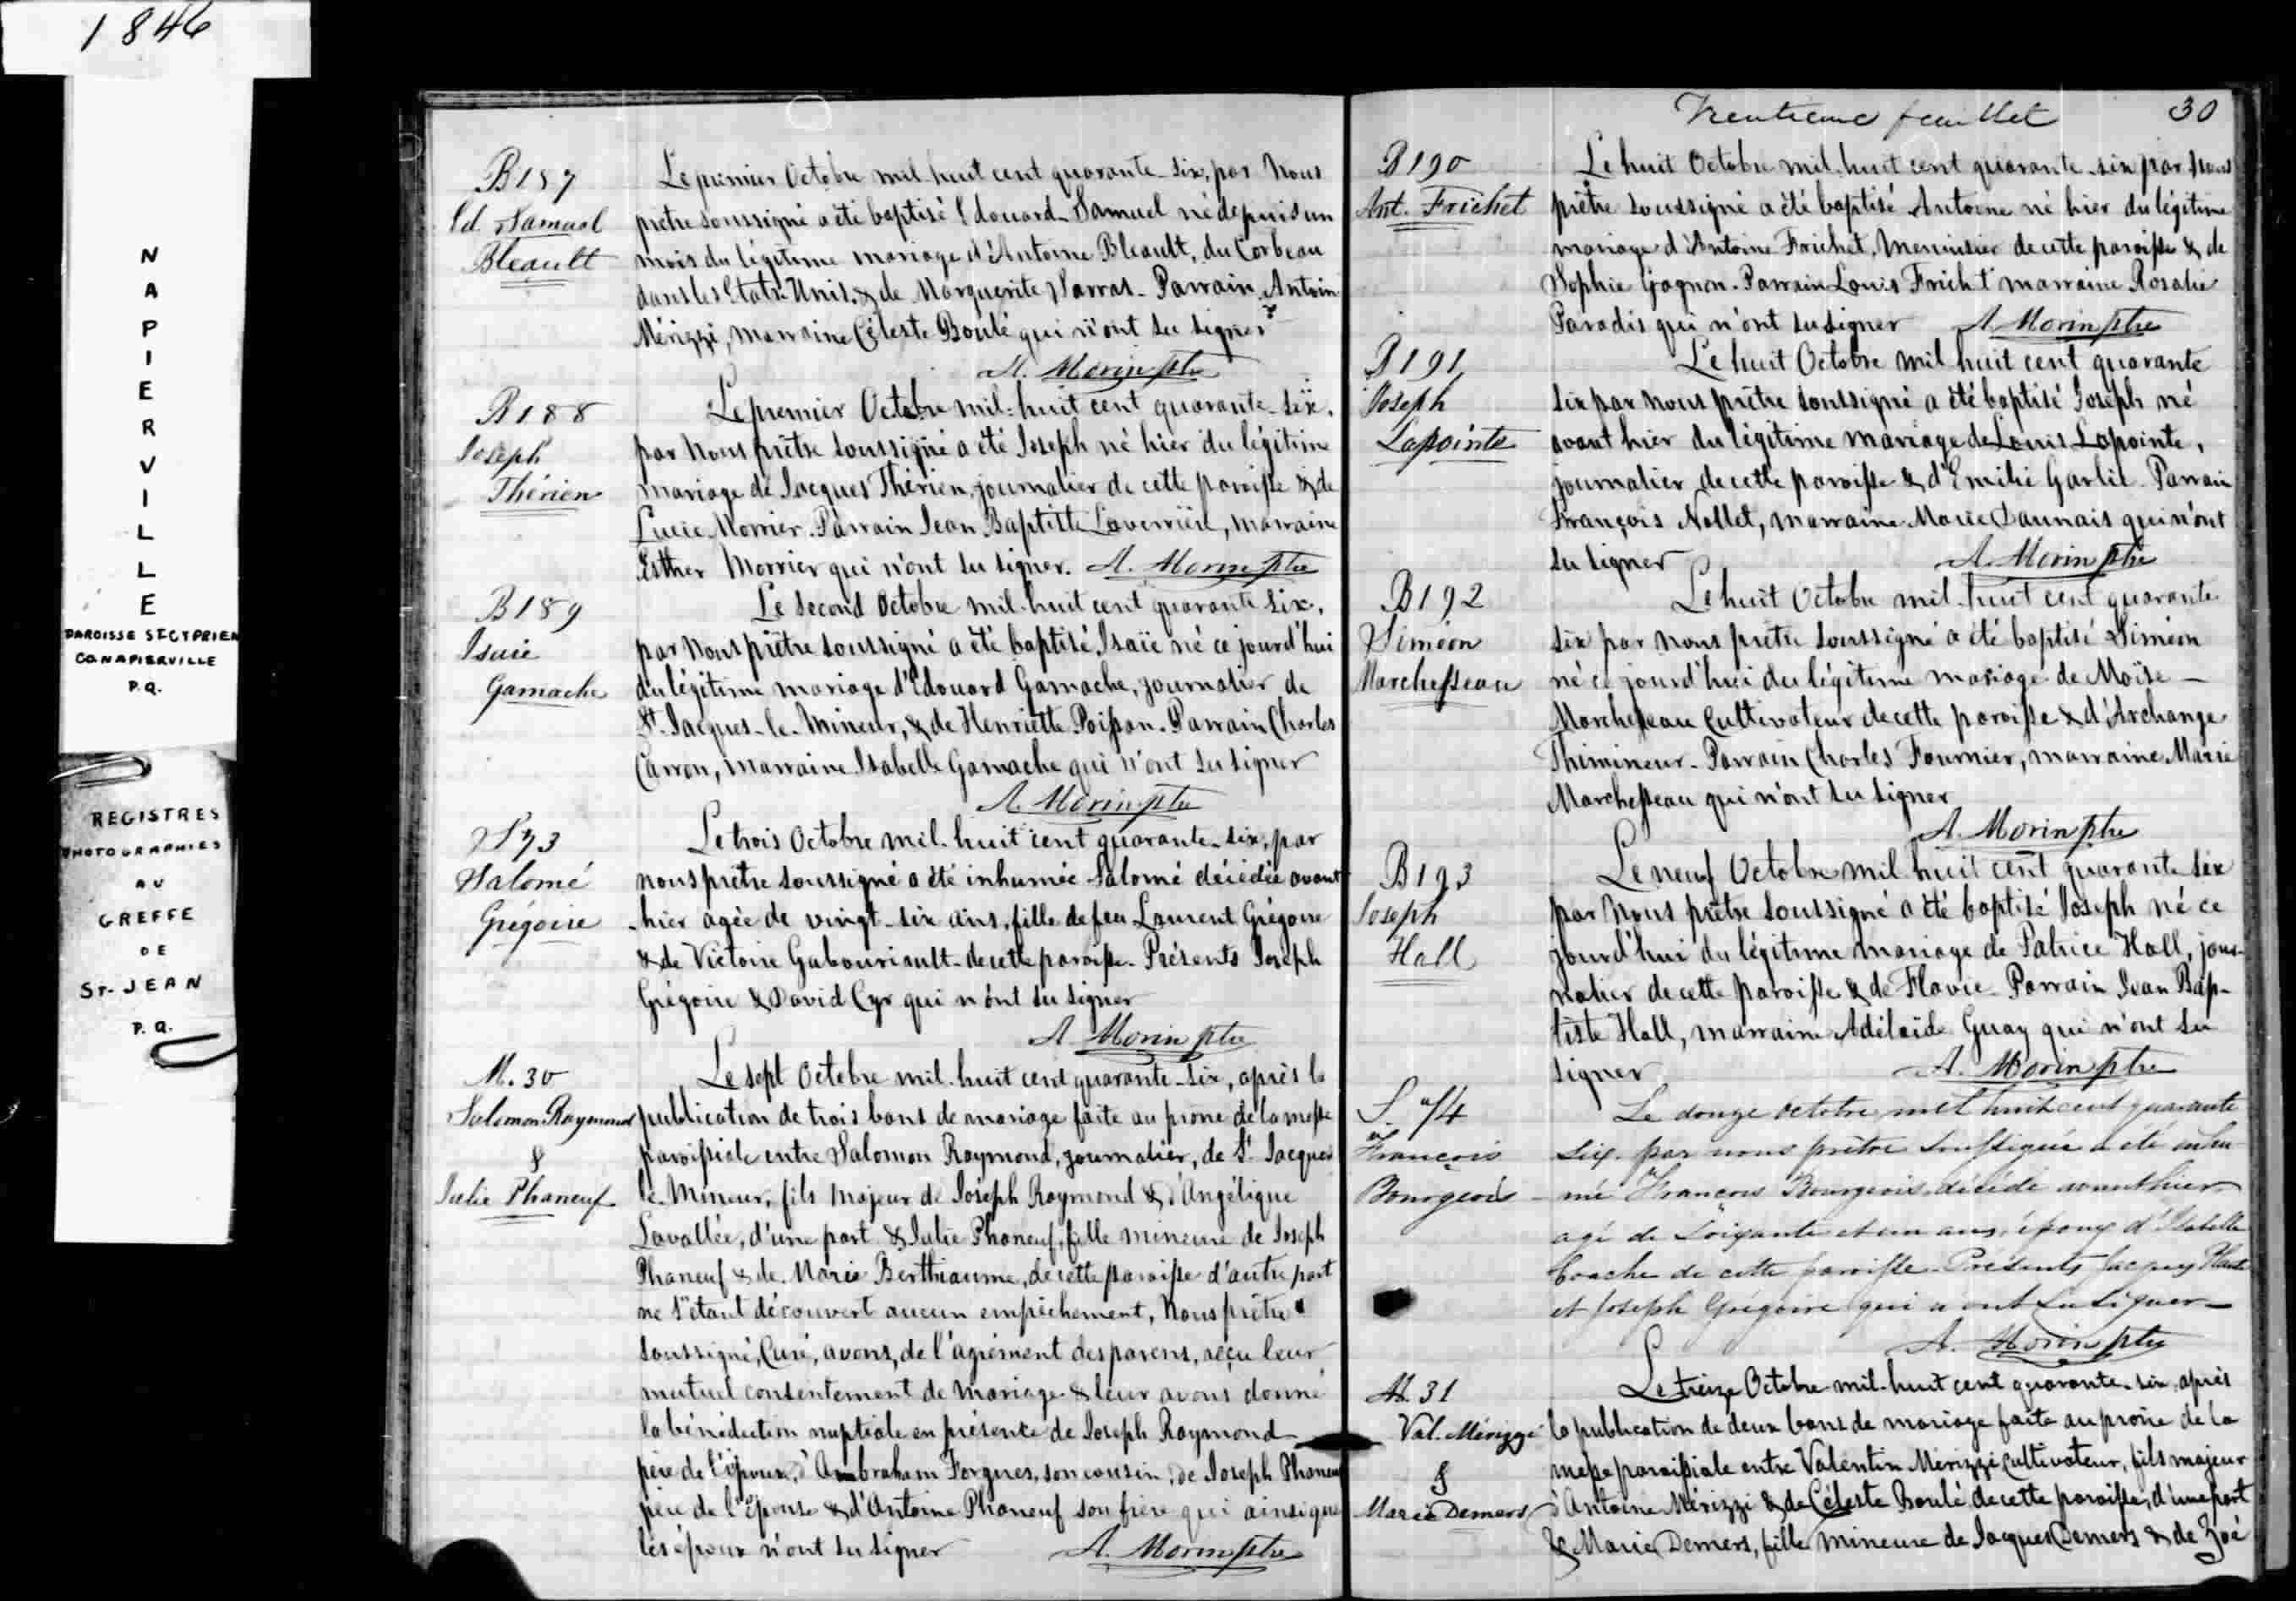 1846
N
A
P
I
E
R
V
I
L
L
E
PAROISSE ST CYPRIEN
CO. NAPIERVILLE
P.Q.
REGISTRES
PHOTOGRAPHIES
AU
GREFFE
DE
ST-JEAN
P.Q.
B187
Ed. Samuel
Bleault
Le premier Octobre mil-huit cent quarante-six, par Nous
prêtre soussigné a été baptisé Edouard-Samuel né depuis un
mois du légitime mariage d'Antoine Bleault, du Corbeau
dans les Etats-Unis, & de Marguerite Sarras. Parrain Antoin
Mérizzi, marraine Céleste Boulé qui n'ont su signer
A. Morin ptre
B188
Joseph
Thérien
Le premier Octobre mil-huit cent quarante-six,
par Nous prêtre soussigné a été Joseph né hier du légitime
mariage de Jacques Thérien, journalier de cette paroisse & de
Lucie Morrier. Parrain Jean Baptiste Laverrière, marraine
Esther Morrier qui n'ont su signer. A. Morin ptre
B189
Isaie
Gamache
Le second Octobre mil-huit cent quarante six,
par Nous prêtre soussigné a été baptisé Isaïe né ce jourd'hui
du légitime mariage d'Edouard Gamache, journalier de
St. Jacques-le-Mineur, & de Henriette Poisson. Parrain Charles
Carron, marraine Isabelle Gamache qui n'ont su signer
A. Morin ptre
S73
Salomé
Grégoire
Le trois Octobre mil-huit cent quarante-six, par
nous prêtre soussigné a été inhumée Salomé décédée avant
-hier agée de vingt-six ans, fille de feu Laurent Grégoire
& de Victoire Gabouriault de cette paroisse. Présents Joseph
Grégoire & David Cyr qui n'ont su signer
A. Morin ptre
M. 30
Salomon Raymond
&
Julie Phaneuf
Le sept Octobre mil-huit cent quarante-six, après la
publication de trois bans de mariage faite au prone de la messe
paroissiale entre Salomon Raymond, journalier, de St. Jacques
le-Mineur, fils majeur de Joseph Raymond & d'Angélique
Lavallée, d'une part & Julie Phaneuf, fille mineure de Joseph
Phaneuf & de Marie Berthiaume, de cette paroisse d'autre part
ne s'étant découvert aucun empêchement, Nous prêtre
soussigné, Curé, avons, de l'agrément des parens, reçu leur
mutuel consentement de mariage & leur avons donné
la bénédiction nuptiale en présence de Joseph Raymond
père de l'époux, d'Ambraham Forgues, son cousin, de Joseph Phaneuf
père de l'épouse & d'Antoine Phaneuf son frère qui ainsi que
les époux n'ont su signer A. Morin ptre
Trentieme feuillet 30
B190
Ant. Frichet
Le huit Octobre mil-huit cent quarante-six par nous
prêtre soussigné a été baptisé Antoine né hier du légitime
mariage d'Antoine Frichet, Menuisier de cette paroisse & de
Sophie Gagnon. Parrain Louis Frich't marraine Rosalie
Paradis qui n'ont su signer A. Morin ptre
B191
Joseph
Lapointe
Le huit Octobre mil huit cent quarante
six par nous prêtre soussigné a été baptisé Joseph né
avant hier du légitime mariage de Louis Lapointe,
journalier de cette paroisse & d'Emilie Garlie. Parrain
François Nollet, marraine Marie Daunais qui n'ont
su signer A. Morin ptre
B192
Siméon
Marchesseau
Le huit Octobre mil-huit cent quarante
six par nous prêtre soussigné a été baptisé Siméon
né ce jourd'hui du légitime mariage de Moïse
Marchesseau Cultivateur de cette paroisse & d'Archange
Thimineur. Parrain Charles Fournier, marraine Marie
Marchesseau qui n'ont su signer
A. Morin ptre
B193
Joseph
Hall
Le neuf Octobre mil huit cent quarante six
par Nous prêtre soussigné a été baptisé Joseph né ce
jourd'hui du légitime mariage de Patrice Hall, jour-
nalier de cette paroisse & de Flavie. Parrain Jean Bap-
tiste Hall, marraine Adélaïde Guay qui n'ont su
signer A. Morin ptre
S. 74
François
Bourgeois
Le douze octobre mil huit cent quarante
six par nous prêtre soussigné a été inhu
mé François Bourgeois décédé avant hier
agé de soixante et un ans, époux d'Isabelle
de cette paroisse. Présents Jacques
et Joseph Grégoire qui n'ont su signer
A. Morin ptre
M. 31
Val. Mérizzi
&
Marie Demers
Le treize Octobre mil-huit cent quarante-six, après
la publication de deux bans de mariage faite au prône de la
messe paroissiale entre Valentin Mérizzi cultivateur, fils majeur
d'Antoine Mérizzi & de Céleste Boulé de cette paroisse, d'une part
& Marie Demers, fille mineure de Jacques Demers & de Zoé